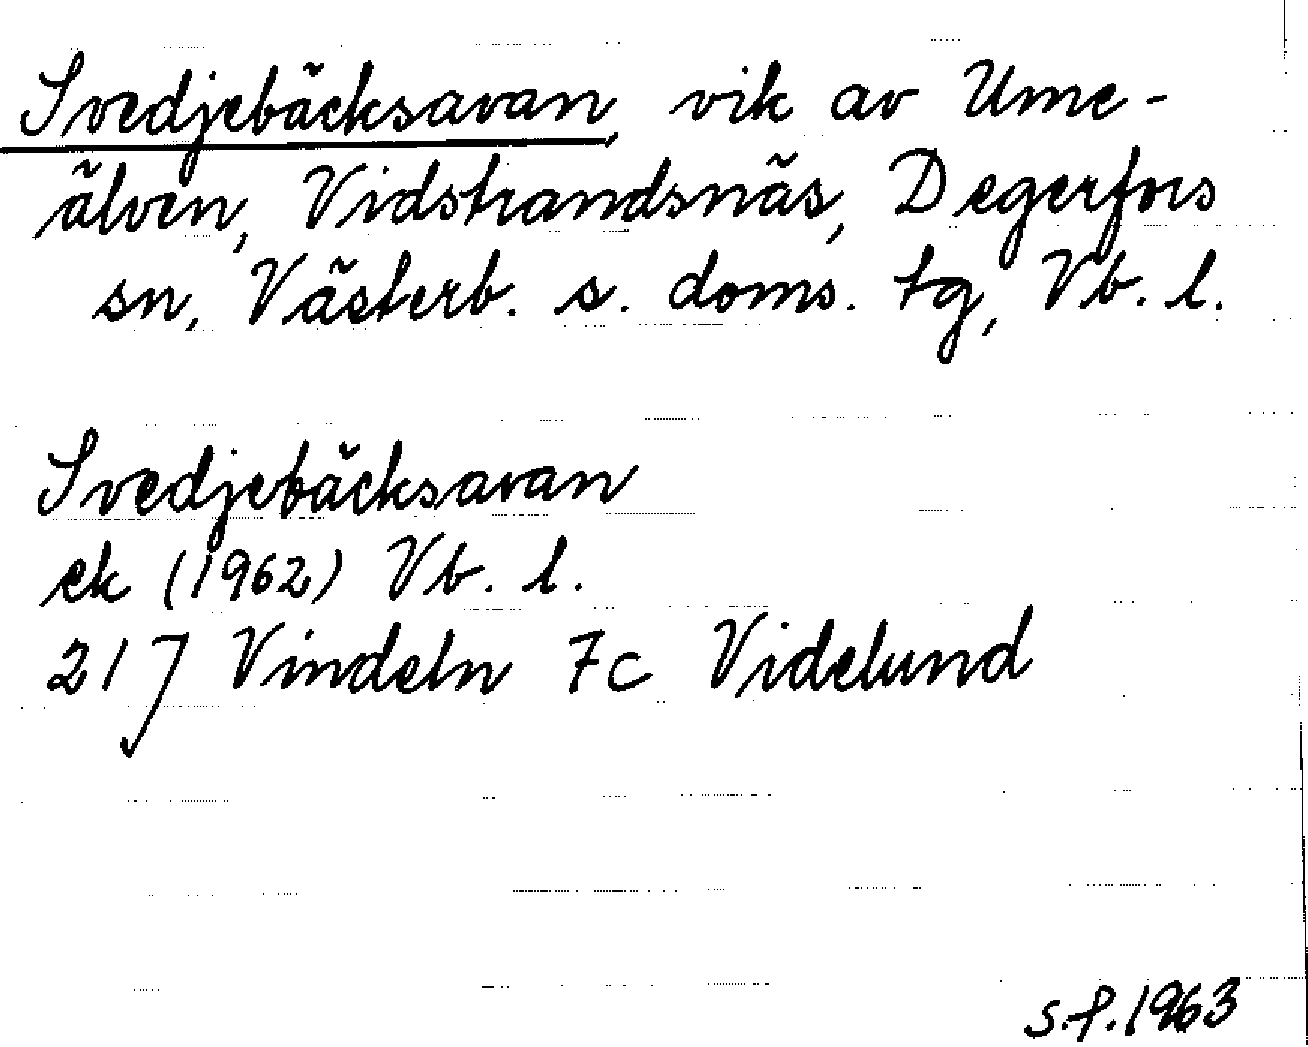 Svedjebäcksavan, vik av Ume-
älven, Vidstrandsnäs, Degerfors
sn, Västerb. s. doms. tg, Vb. l.
Svedjebäcksavan
ek (1962) Vb. l.
21J Vindeln 7c Videlund
S.f.1963